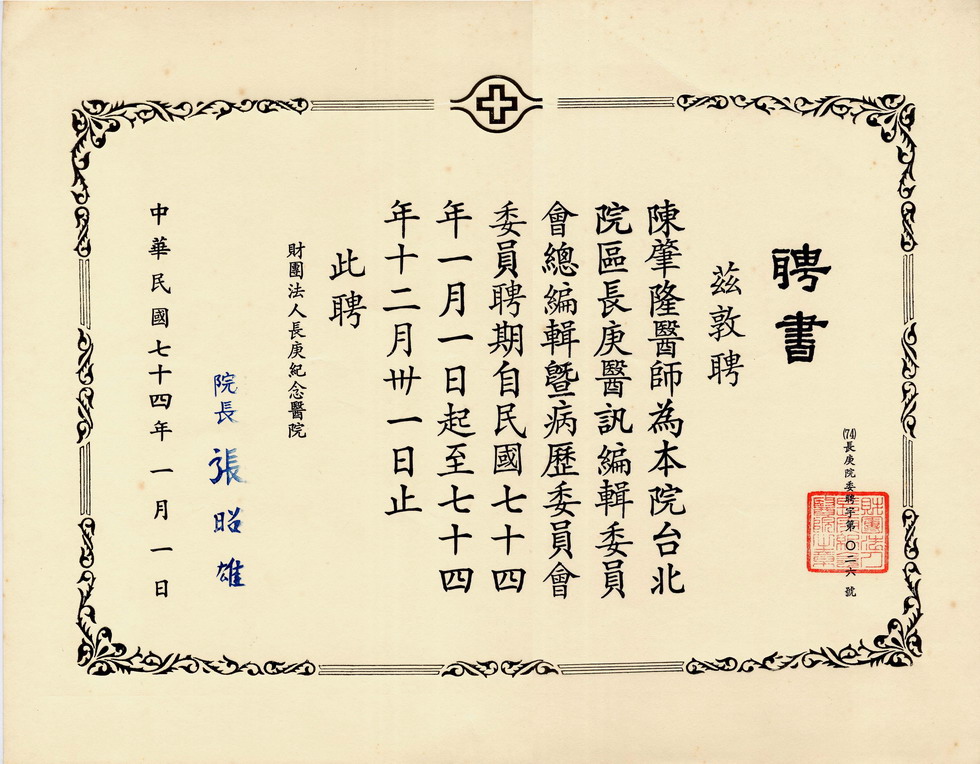 聘書
(74)長庚院委聘字第〇二六號
茲敦聘
陳肇隆醫師為本院台北
院區長庚醫訊編輯委員
會總編輯暨病歷委員會
委員聘期自民國七十四
年一月一日起至七十四
年十二月卅一日止
此聘
財團法人長庚紀念醫院
院長 張昭雄
中華民國七十四年一月一日